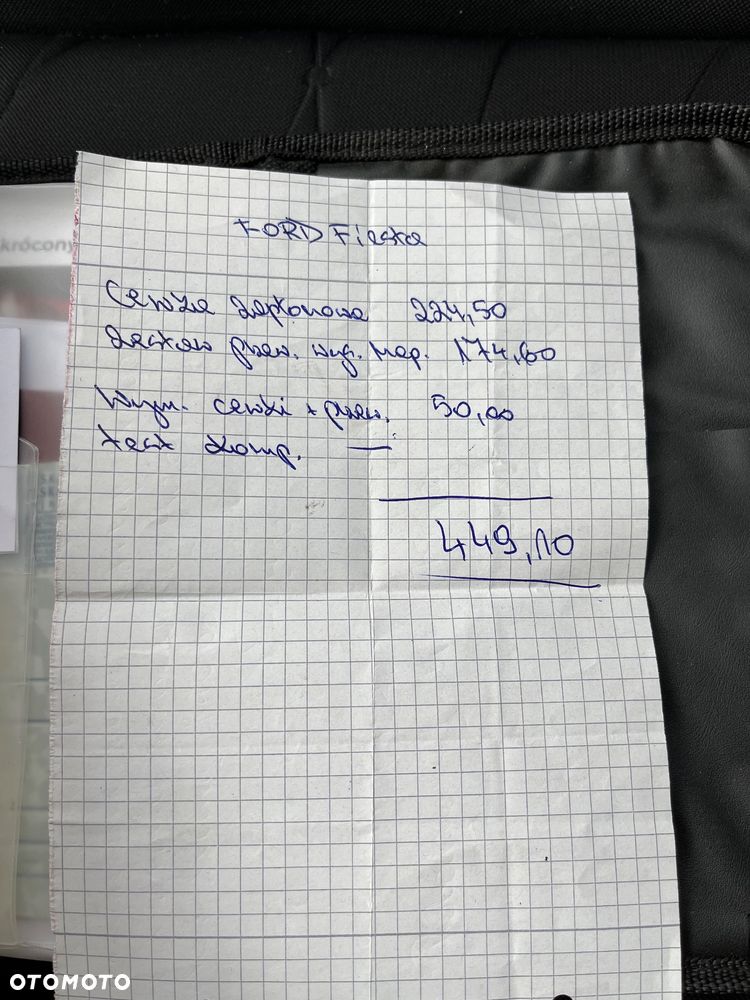 krócony
FORD Fiesta
Cewka zapłonowa 224,50
Zestaw przew. wys. nap. 174,60
Wym. cewki + przew. 50,00
test komp. —
449,10
OTOMOTO